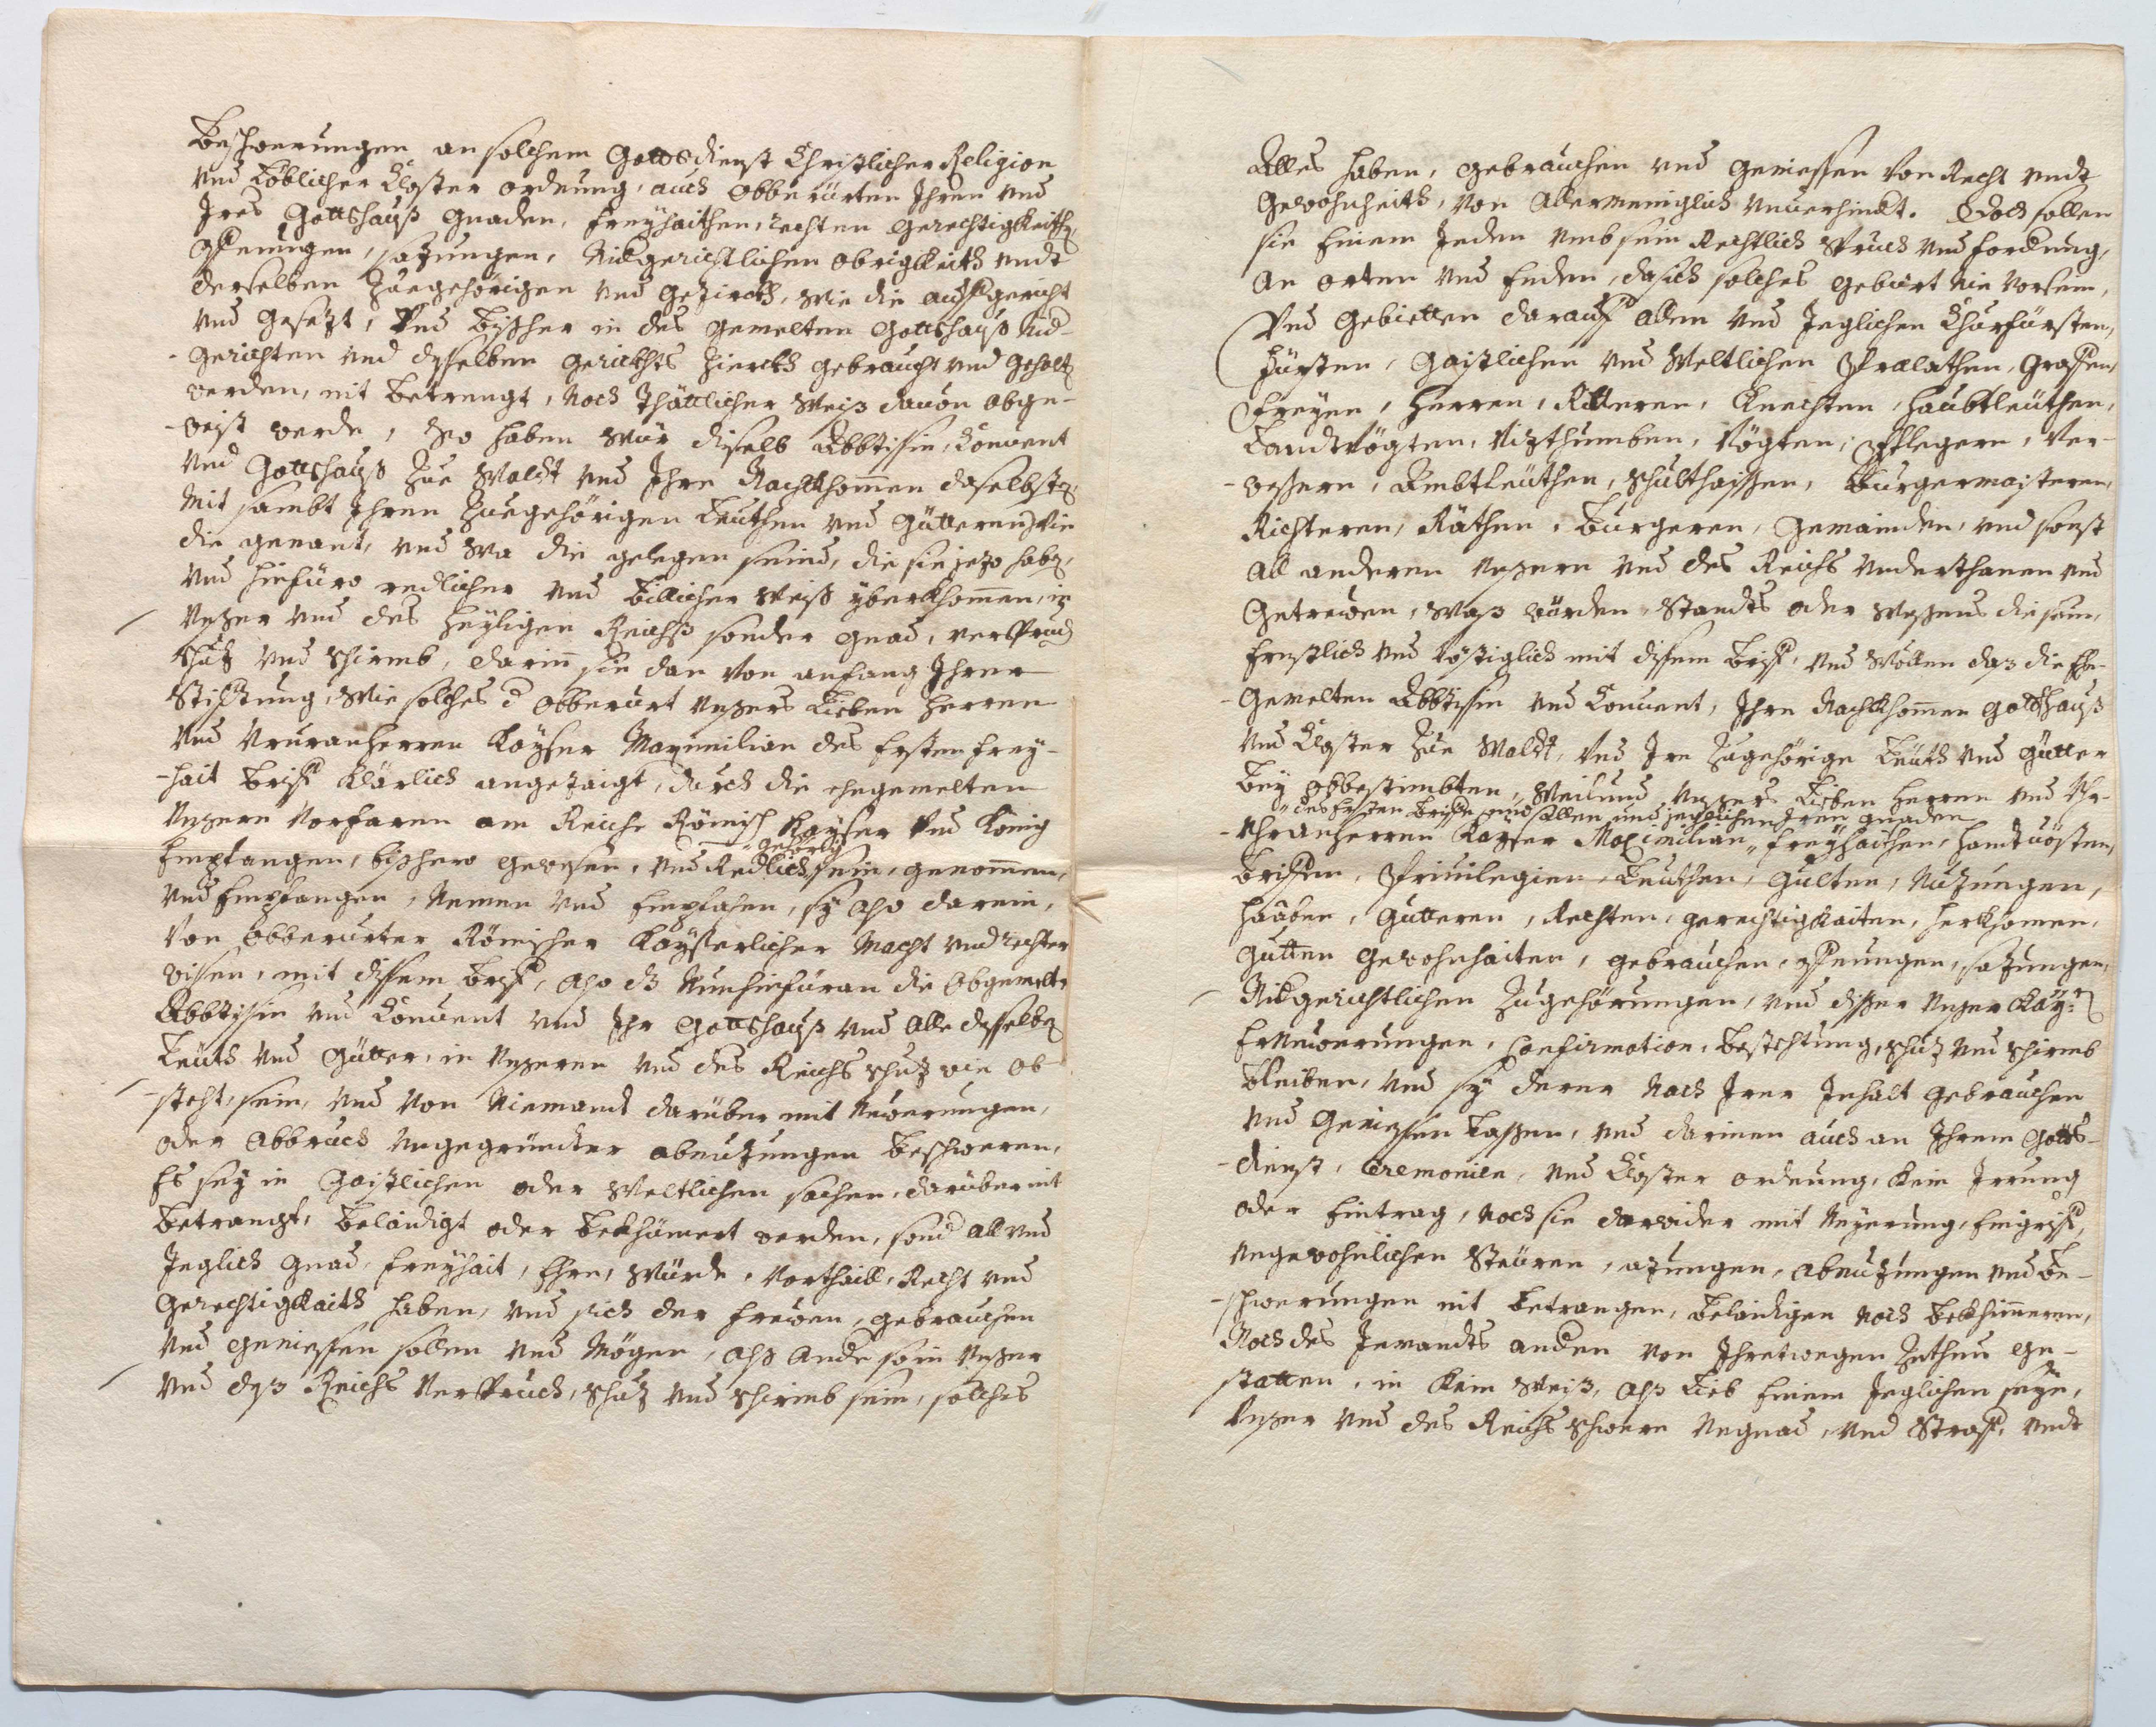 Beschwerungen an solchem Gottsdienst Christlicher Religion
und Löblicher Closter ordnung, auch obberürten Ihren und
Ires Gottshauß Gnaden, Freyhaithen, rechten Gerechtigkeithen,
Offnungen, sazungen, Nidgerichtlichen obrigkeith undt
derselben Zuegehörigen und gezirckh, wie die auffgericht
und gesezt, Und bißher in des gemelten Gottshauß Nid-
-gerichten und desselben gerichts Zierckh gebraucht und gehalten
werden, nit betrengt, noch thättlicher Weiß davon abge-
-weist werde, So haben Wür dieselb Abbtissin, Convent
und Gottshauß Zue Waldt und Ihre Nachkhommen daselbsten,
Mit sambt Ihren Zuegehörigen Leuthen und Gütteren, wie
die genant, und Wa die gelegen seind, die sie jezo haben,
und hinfüro redlicher und billicher Weiß yberkhommen, in
Unßer und des Heyligen Reichß sonder Gnad, verspruch
schuz und schirmb, darinn sie dan von anfang Ihrer
Stifftung, Wie solches d obberürt Unßers Lieben Herren
und Ururanherren Kayser Maximilian des Ersten Frey-
-hait brieff klärlich angezaigt, durch die ehegemelten
Unßern Vorfaren am Reiche Römisch Kayser und König
Empfangen, bißhero gewesen, und Redlich gehörig sein, genommen,
und Empfangen, Nemen und Empfahen, sy also darein,
von obberürter Römischer Kayßerlicher Macht und rechter
wissen, mit dissem brieff, also dz Nunhinfüran die obgemelte
Abbtissin und Convent und Ihr Gottshauß und alle desselben
Leuth und Gütter, in Unßeren und des Reichs schuz wie ob
steht, sein, und von Niemandt darüber mit Newerungen,
oder Abbruch Ungegründter abnuzungen beschweren,
Es sey in Gaistlichen oder Weltlichen sachen, darüber nit
betrangt, belaidigt oder bekhümert werden, sond all und
Jeglich Gnad, Freyhait, Ehre, Würde, Vorthaill, Recht und
Gerechtigkaith haben, und sich der frewen, gebrauchen
und geniessen sollen und Mögen, alß Ande so in Unßer
und deß Reichs Verspruch, schuz und schirmb sein, solches
Alles haben, gebrauchen und geniessen von Recht undt
Gewohnheith, von Allermeniglich unverhindt. Doch sollen
sie Einem Jeden umb sein Rechtlich spruch und fordrung,
An orten und Enden, da sich solches gebürt Nie vorsein,
Und Gebietten darauff allen und Jeglichen Churfürsten,
Fürsten, Gaistlichen und Weltlichen Prælathen, Graffen,
Freyen, Herren, Ritteren, Knechten, Haubtleüthen,
Landtvögten, Vizthumben, Vögten, Pflegern, Ver-
-weßern, Ambtleüthen, Schulthaissen, Burgermaisteren,
Richteren, Räthen, Burgeren, Gemainden, und sonst
all anderen Unßern und des Reichs Underthanen und
Getrewen, Waß würden, Standts oder Weßens die sein,
Ernstlich und Vöstiglich mit dissem brieff, und Wöllen das die Ehe-
-gemelten Abbtissin und Convent, Ihre Nachkhommen Gottshauß
und Closter Zue Waldt, und Ire Zugehörige Leuth und Gütter
bey obbestimbten, Weilund Unßers Lieben Herren und Ur-
" des Ersten Brieffe, und allen und jeglichen Iren gnaden
-Uhranherren Kayser Maximilian " Freyhaithen, Handtvösten,
Brieffen, Privilegien, Leuthen, Gülten, Nuzungen,
Haaben, Gütteren, Rechten, gerechtigkaiten, herkhomen,
Gutten Gewohnhaiten, gebrauchen, offnungen, sazungen,
Nidgerichtlichen Zugehörungen, und disser Unßer Kay:n
Ernewerungen, Confirmation, bestehtung, schuz und schirmb
bleiben, und sy derer nach Irer Inhalt gebrauchen
und Geniessen Lassen, und darinen auch an Ihrem Gotts-
-dienst, Ceremonien, und Closter ordnung, kein Irrung
oder Eintrag, noch sie darwider mit Neyerung, Eingriff,
ungewohnlichen Steüren, azungen, abnuzungen und be-
-schwerungen nit betrangen, belaidigen noch bekhümeren,
Noch des Jemandts anden von Ihretwegen Zuthun ge-
statten, in kein Weiß, alß Lieb Einem Jeglichen seye,
Unßer und des Reichs schwere Ungnad, und Straff, undt